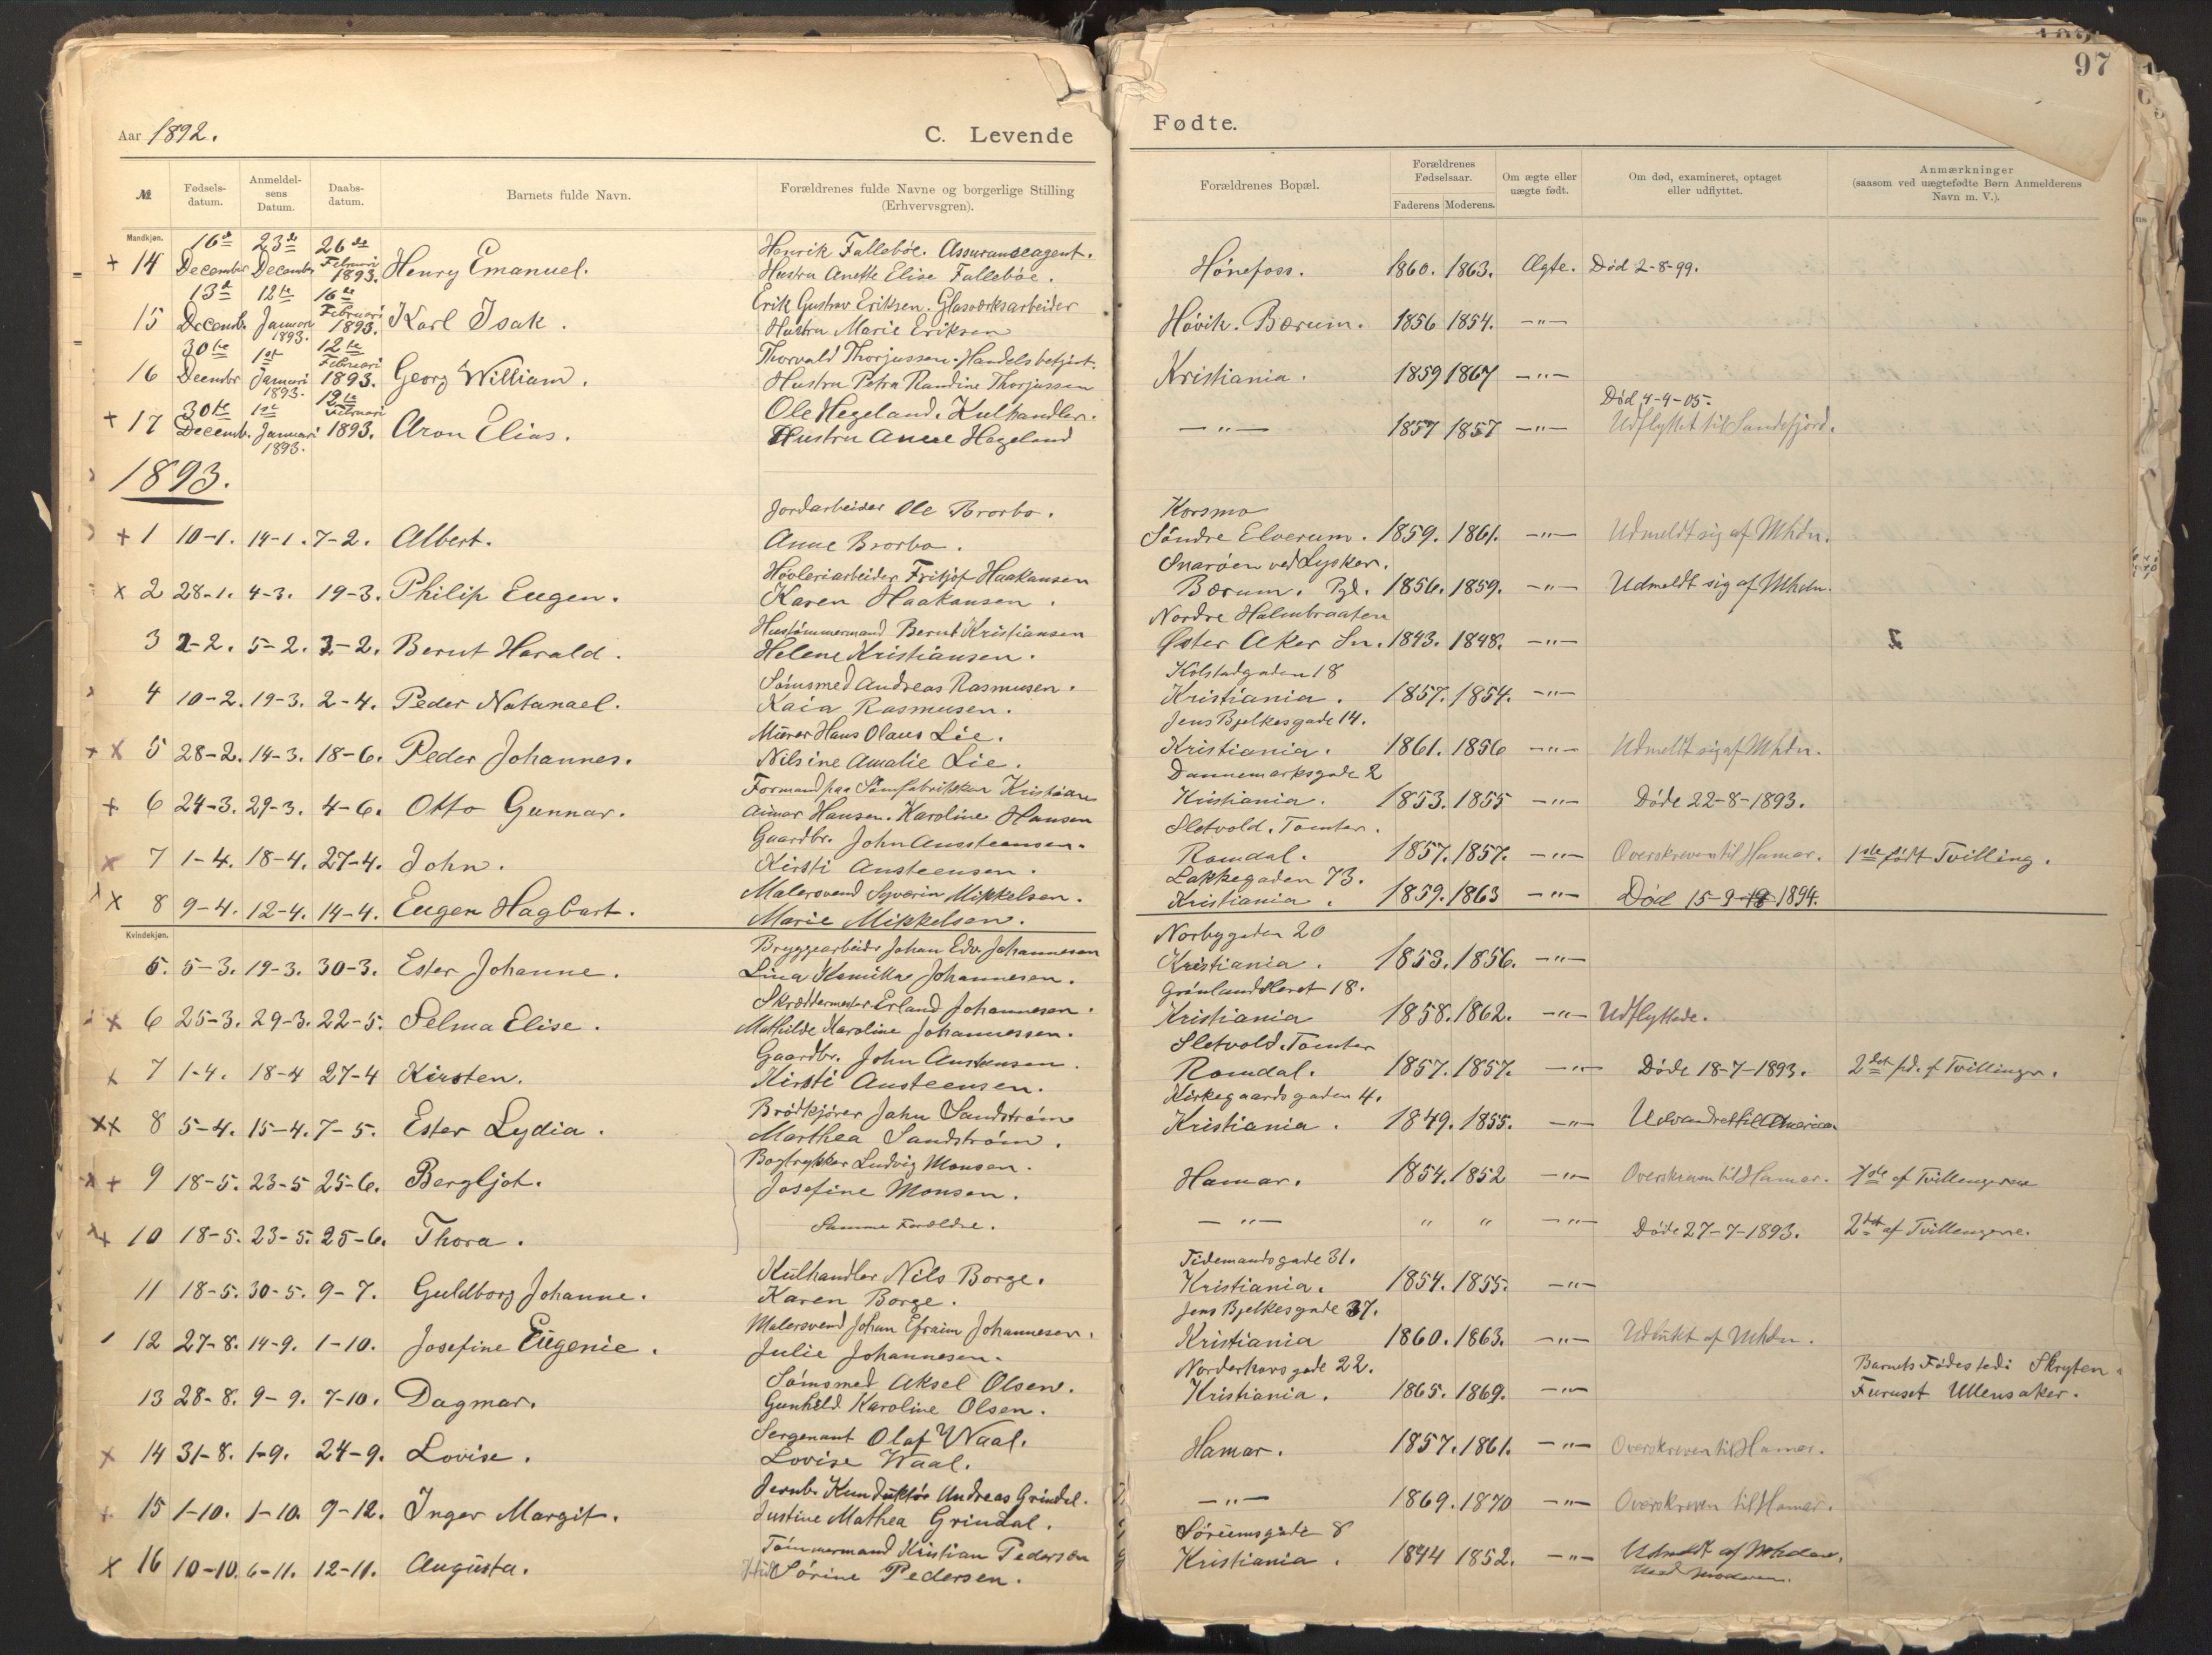 97
Aar 1892.
C. Levende
Fødte.
№ Fødsels-datum. Anmeldel-sens Datum. Daabs-datum. Barnets fulde Navn. Forældrenes fulde Navne og borgerlige Stilling (Erhvervsgren). Forældrenes Bopæl. Forældrenes Fødselsaar. Faderens Moderens. Om ægte eller uægte født. Om død, examineret, optaget eller udflyttet. Anmærkninger (saasom ved uægtefødte Børn Anmelderens Navn m. V.).
Mandkjøn.
+ 14 16de December 23de December 26de Februari 1893. Henry Emanuel. Henrik Falleböe. Assuranceagent. Hustru Anette Elise Falleböe. Hönefoss. 1860. 1863. Ægte. Död 2-8-99.
15 13de Decemb. 12te Januari 1893. 16de Februari 1893. Karl Isak. Erik Gustav Eriksen. Glasværksarbeider Hustru Marie Eriksen Hövik. Bærum. 1856 1854. -"-
16 30te Decembr 1st Januari 1893. 12te Februari 1893. Georg William. Thorvald Thorjussen. Handelsbetjent. Hustru Petra Randine Thorjussen Kristiania. 1859 1867 -"-
+ 17 30te Decemb. 1st Januari 1893. 12te Februari 1893. Aron Elias. Ole Hegeland. Kulhandler. Hustru Anne Hegeland -"- 1857 1857 -"- Död 4-4-05. Udflyttet til Sandefjord.
1893.
+ 1 10-1. 14-1. 7-2. Albert. Jordarbeider Ole Brorbo. Anne Brorbo. Korsmo Söndre Elverum. 1859. 1861. -"- Udmeldt sig af Mhdn.
x 2 28-1. 4-3. 19-3. Philip Eugen. Høvleriarbeider Fritjof Haakansen Karen Haakansen. Snaröen ved Lysker. Bærum. Pgl. 1856. 1859. -"- Udmeldt sig af Mhdn.
3 2-2. 5-2. 3-2. Bernt Harald. Hustömmermand Bernt Kristiansen Helene Kristiansen. Nordre Halmbraaten Øster Aker Sn. 1843. 1848. -"-
4 10-2. 19-3. 2-4. Peder Natanael. Sömsmed Andreas Rasmusen. Kaia Rasmusen. Kolstadgaden 18 Kristiania. 1857. 1854. -"-
+ x 5 28-2. 14-3. 18-6. Peder Johannes. Murer Hans Olaus Lie. Nilsine Amalie Lie. Jens Bjelkesgade 14. Kristiania. 1861. 1856 -"- Udmeldt sig af Mhdn.
+ 6 24-3. 29-3. 4-6. Otto Gunnar. Formand paa Sömfabrikken Kristian Hansen. Karoline Hansen Dannemarksgade 2 Kristiania. 1853. 1855 -"- Döde 22-8-1893.
x 7 1-4. 18-4. 27-4. John. Gaardbr. John Austeensen. Kirsti Austeensen. Sletvold. Tomter. Romdal. 1857. 1857. -"- Overskreven til Hamar. 1ste født Tvilling.
x 8 9-4. 12-4. 14-4. Eugen Hagbart. Malersvend Syverin Mikkelsen. Marie Mikkelsen. Lakkegaden 73. Kristiania. 1859. 1863 -"- Död 15-9 1894.
Kvindekjøn.
5. 5-3. 19-3. 30-3. Ester Johanne. Bryggearbeidr Johan Edv. Johannesen Lina Kamilla Johannesen. Norbygaden 20 Kristiania. 1853. 1856. -"-
x 6 25-3. 29-3. 22-5. Selma Elise. Skræddermester Erland Johannesen. Mathilde Karoline Johannessen. Grönlandsleret 18. Kristiania 1858. 1862. -"- Udflyttede.
x 7 1-4. 18-4 27-4 Kirsten. Gaardbr. John Austeensen. Kirsti Austeensen. Sletvold. Tomter Romdal. 1857. 1857. -"- Döde 18-7-1893. 2det fd. af Tvillinger.
xx 8 5-4. 15-4. 7-5. Ester Lydia. Brödkjörer Jahn Sandström Marthea Sandström. Kirkegaardsgaden 4. Kristiania. 1849. 1855. -"- Udvandret til Amerika
x + 9 18-5. 23-5 25-6. Bergljot. Bogtrykker Ludvig Monsen. Josefine Monsen. Hamar. 1854. 1852 -"- Overskreven til Hamar. 1ste af Tvillengerne
x 10 18-5. 23-5. 25-6. Thora. Samme Forældre. -"- " " -"- Döde 27-7-1893. 2det af Tvillengerne.
11 18-5. 30-5. 9-7. Guldborg Johanne. Kulhandler Nils Borge. Karen Borge. Tidemandsgade 31. Kristiania. 1854. 1855. -"-
12 27-8. 14-9. 1-10. Josefine Eugenie. Malersvend Johan Efraim Johannesen. Julie Johannesen. Jens Bjelkesgade 37. Kristiania 1860. 1863. -"- Udlukt af Mhdn.
13 28-8. 9-9. 7-10. Dagmar. Sömsmed Aksel Olsen. Gunhild Karoline Olsen. Norderhovsgade 22. Kristiania. 1865. 1869. -"- Barnets Fødested: Skryten Furuset Ullensaker.
x 14 31-8. 1-9. 24-9. Lovise. Sergenant Olaf Waal. Lovise Waal. Hamar. 1857. 1861. -"- Overskreven til Hamar.
+ 15 1-10. 1-10. 9-12. Inger Margit. Jernb. Kunduktör Andreas Grindal. Justine Mathea Grindal. -"- 1869. 1870 -"- Overskreven til Hamar.
x 16 10-10. 6-11. 12-11. Augusta. Tömmermand Kristian Pedersen Sörine Pedersen. Sörumsgade 8 Kristiania. 1844 1852. -"- Udmeldt af Mhdn. med moderen.